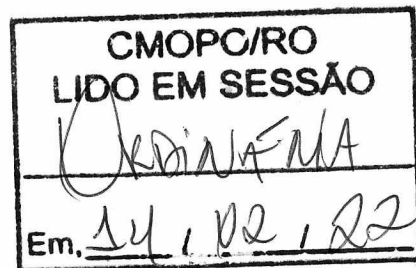 CMOPO/RO
LIDO EM SESSÃO
ORDINÁRIA
Em, 14 / 02 / 22